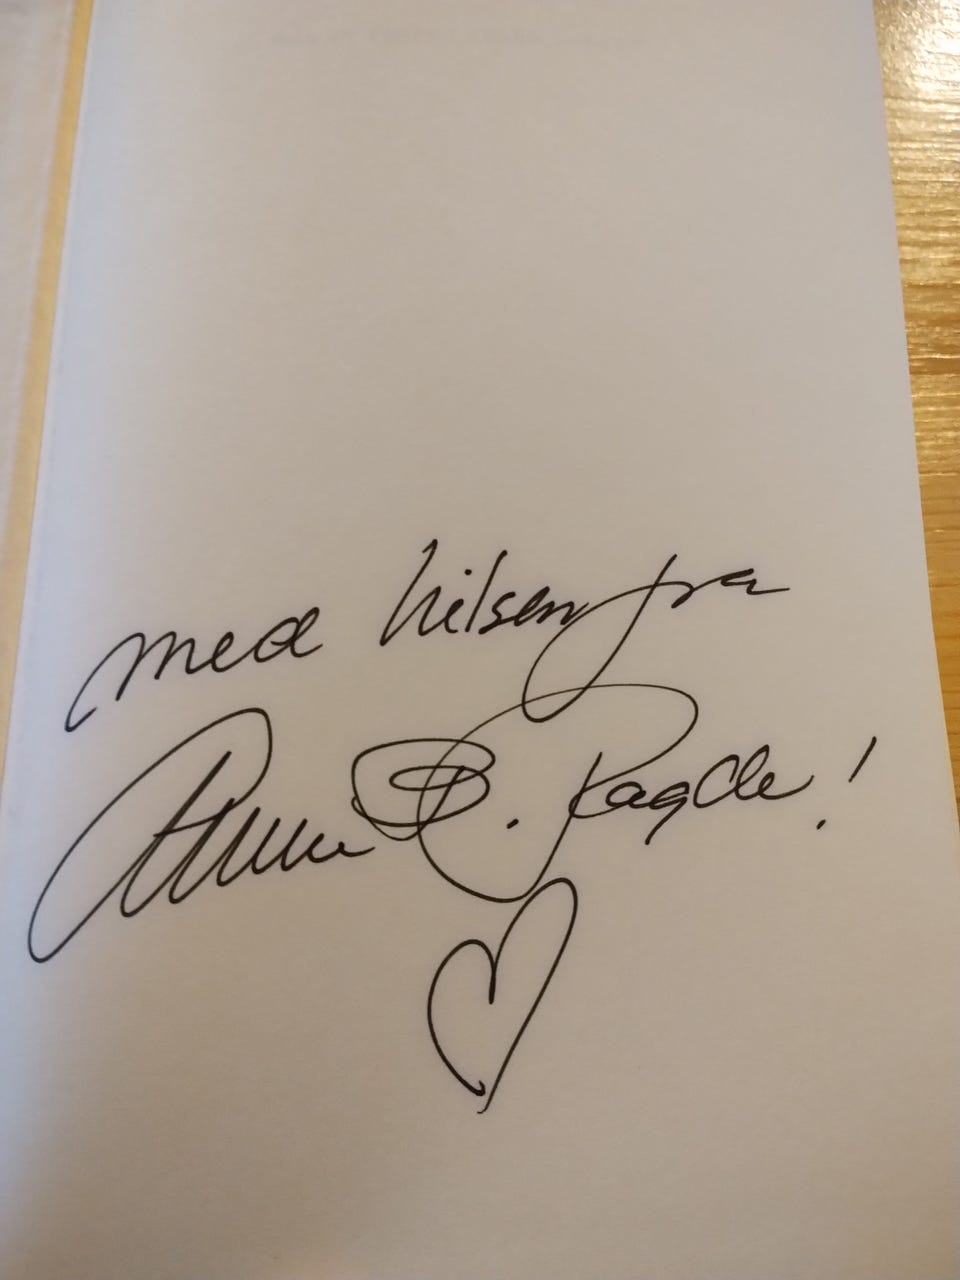 med hilsen fra
Anne B. Ragde!